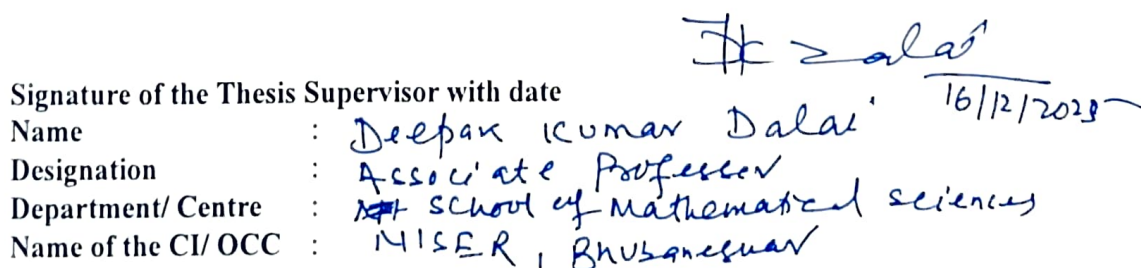 DK Dalai
16/12/2025
Signature of the Thesis Supervisor with date
Name : Deepak Kumar Dalai
Designation : Associate Professor
Department/ Centre : School of Mathematical sciences
Name of the CI/ OCC : NISER, Bhubaneswar